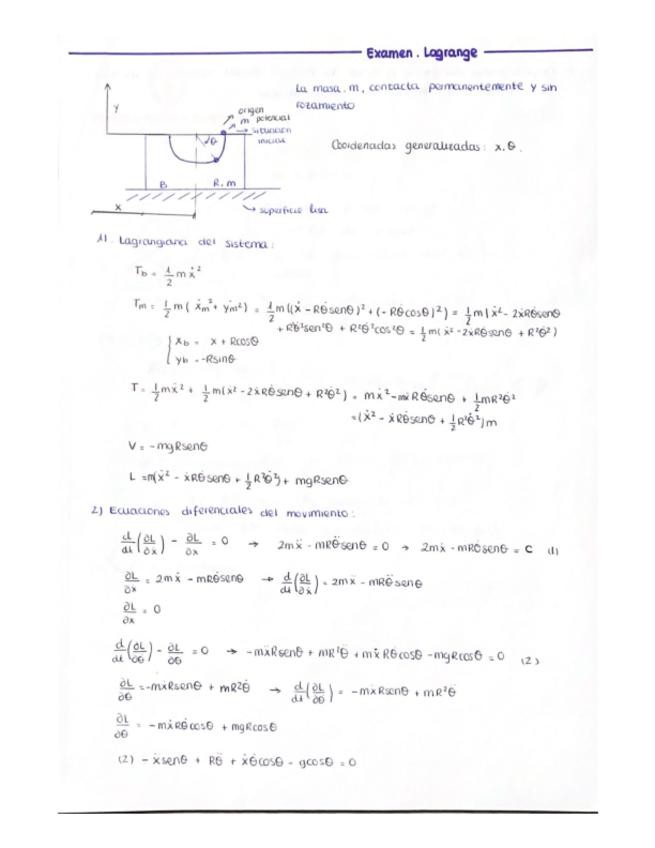 Examen. Lagrange
La masa, m, contacta permanentemente y sin
rozamiento
Coordenadas generalizadas: x, θ.
y
origen
potencial
m
situación
inicial
θ
B
R, m
x
superficie lisa
1). Lagrangiana del sistema:
T_b = 1/2 m ẋ²
T_m = 1/2 m (ẋ_m² + ẏ_m²) = 1/2 m ((ẋ - Rθ̇ senθ)² + (-Rθ̇ cosθ)²) = 1/2 m (ẋ² - 2ẋRθ̇ senθ
+ R²θ̇² sen²θ + R²θ̇² cos²θ = 1/2 m (ẋ² - 2ẋRθ̇ senθ + R²θ̇²)
{ x_b = x + Rcosθ
y_b = -Rsinθ
T = 1/2 mẋ² + 1/2 m (ẋ² - 2ẋRθ̇ senθ + R²θ̇²) = mẋ² - mẋRθ̇ senθ + 1/2 mR²θ̇²
= (ẋ² - ẋRθ̇ senθ + 1/2 R²θ̇²) m
V = -mgRsenθ
L = m(ẋ² - ẋRθ̇ senθ + 1/2 R²θ̇²) + mgRsenθ
2) Ecuaciones diferenciales del movimiento:
d/dt (∂L/∂ẋ) - ∂L/∂x = 0 → 2mẍ - mRθ̈ senθ = 0 → 2mẋ - mRθ̇ senθ = C (1)
∂L/∂ẋ = 2mẋ - mRθ̇ senθ → d/dt (∂L/∂ẋ) = 2mẍ - mRθ̈ senθ
∂L/∂x = 0
d/dt (∂L/∂θ̇) - ∂L/∂θ = 0 → -mẍRsenθ + mR²θ̈ + mẋRθ̇ cosθ - mgRcosθ = 0 (2)
∂L/∂θ̇ = -mẋRsenθ + mR²θ̇ → d/dt (∂L/∂θ̇) = -mẍRsenθ + mR²θ̈
∂L/∂θ = -mẋRθ̇ cosθ + mgRcosθ
(2) -ẍ senθ + Rθ̈ + ẋθ̇ cosθ - gcosθ = 0